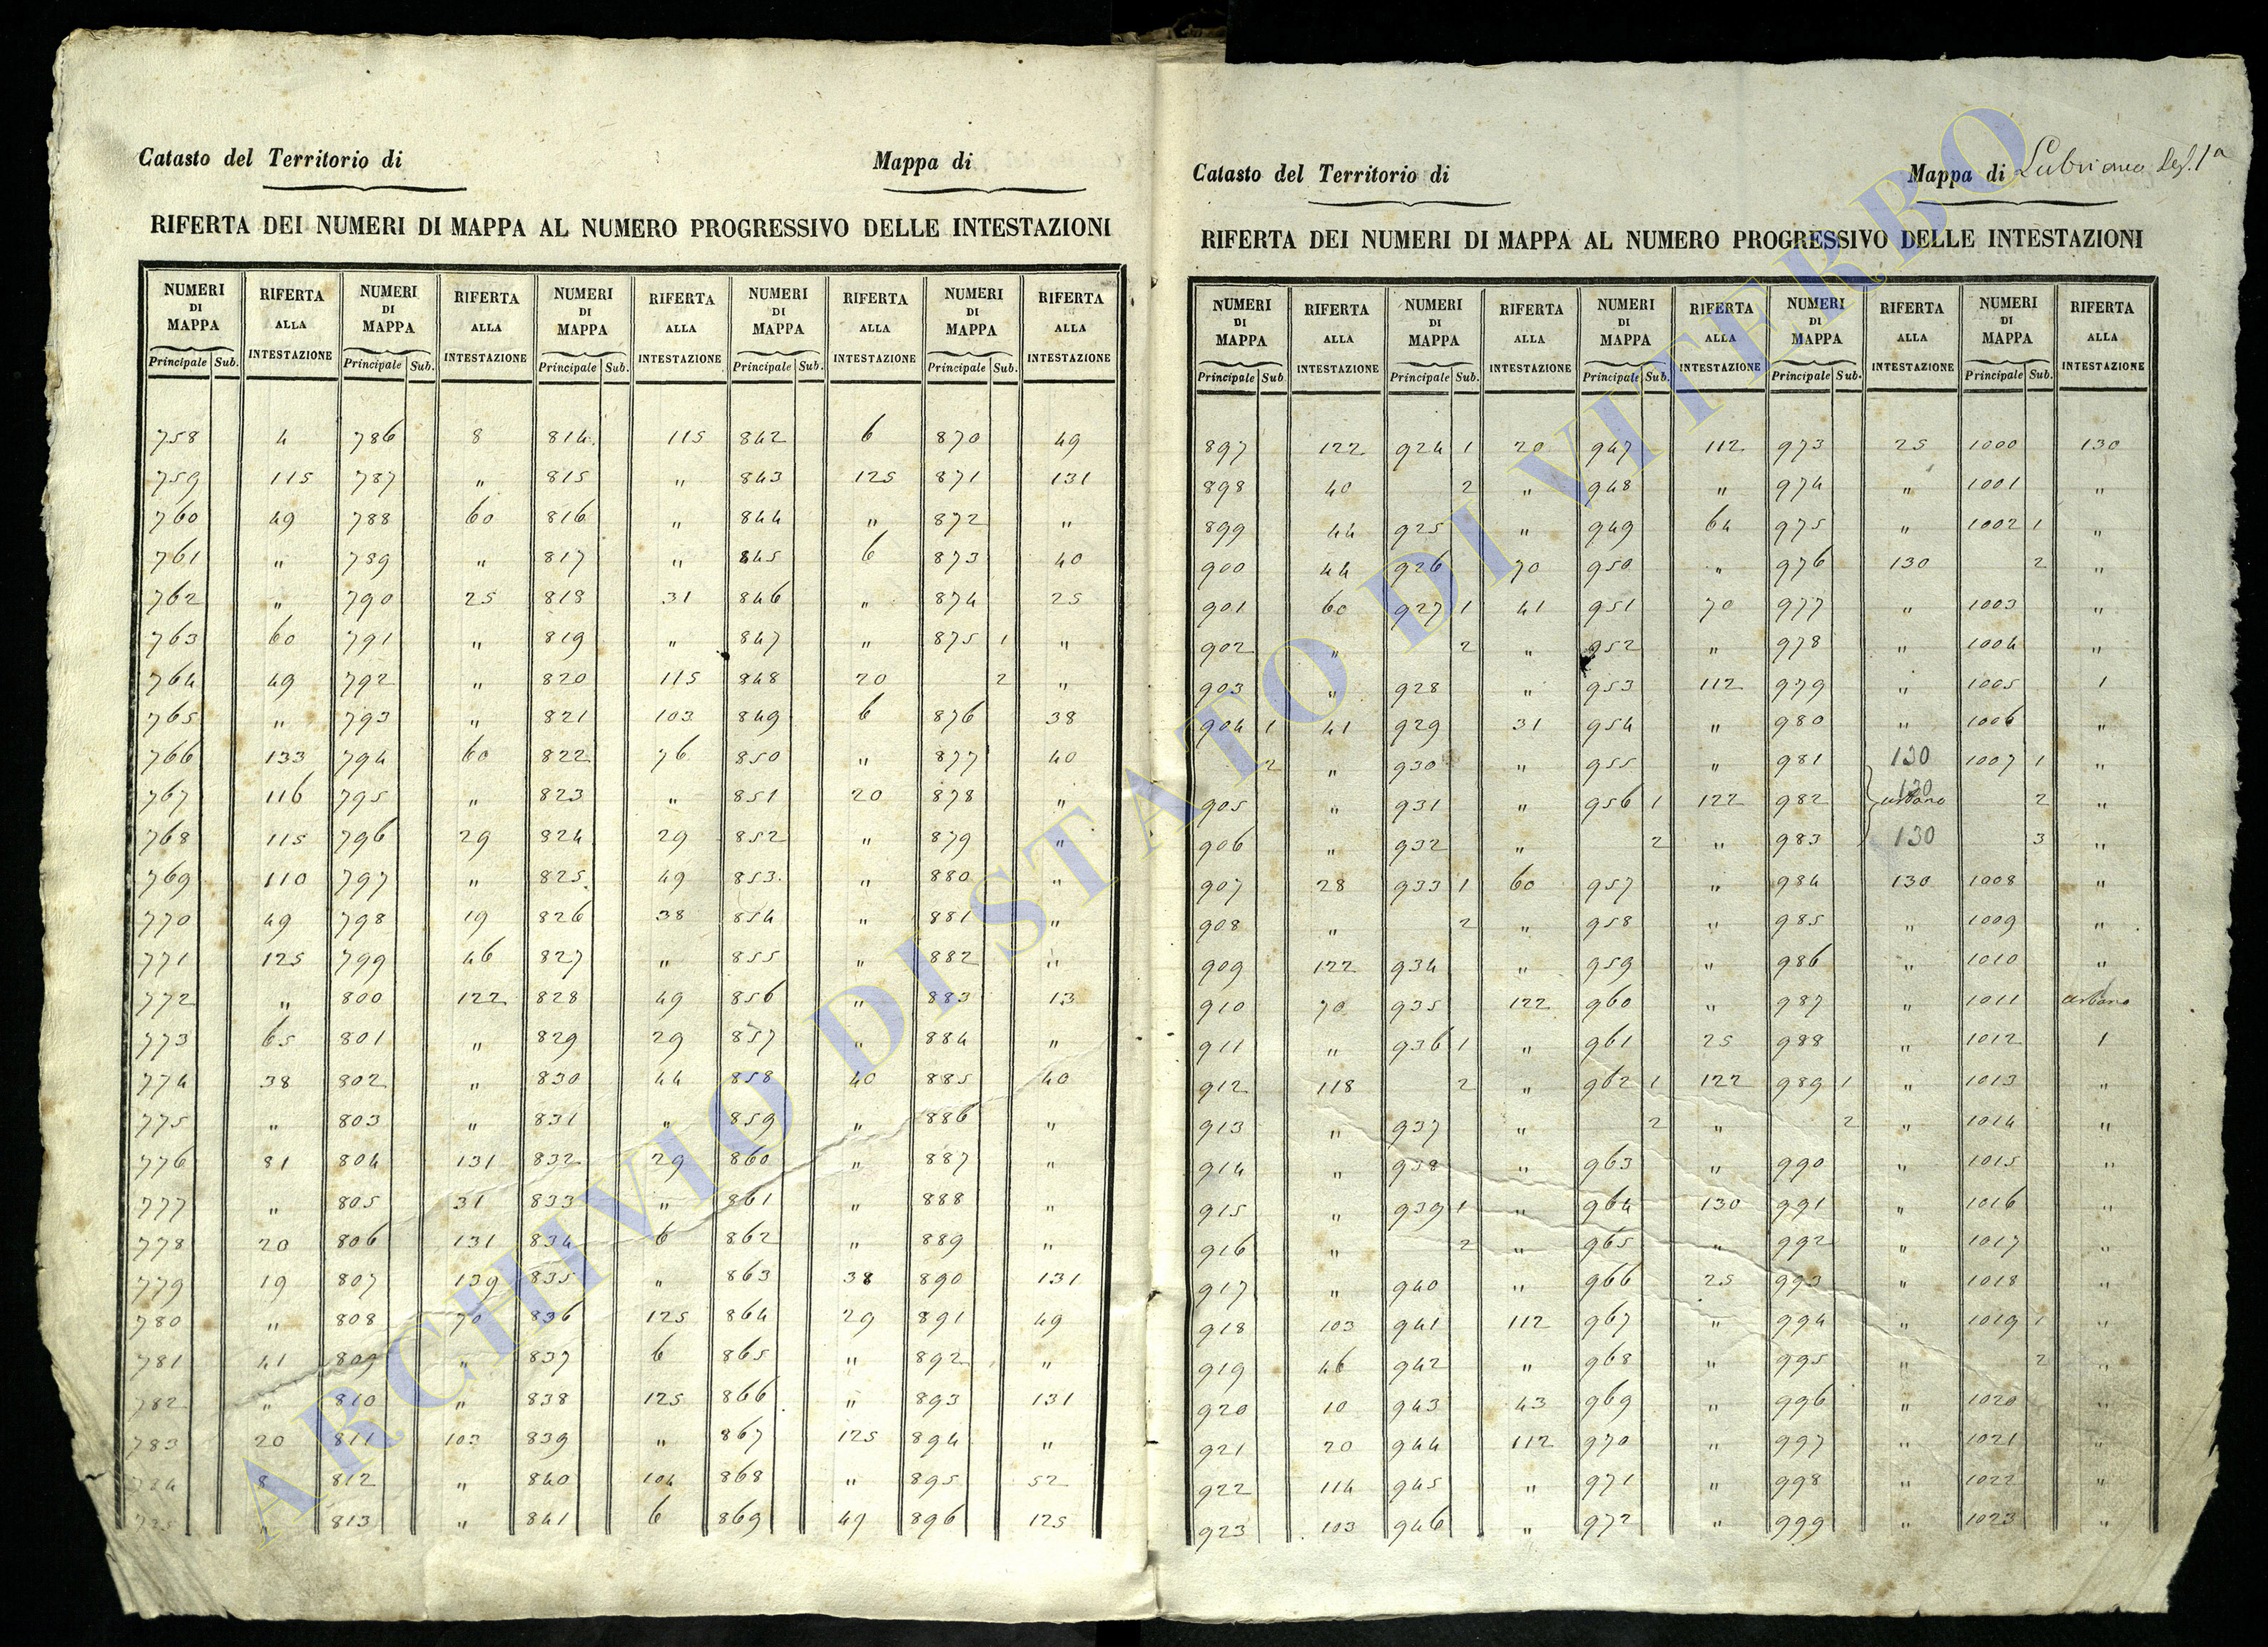 Catasto del Territorio di Mappa di
RIFERTA DEI NUMERI DI MAPPA AL NUMERO PROGRESSIVO DELLE INTESTAZIONI
NUMERI DI MAPPA RIFERTA ALLA INTESTAZIONE NUMERI DI MAPPA RIFERTA ALLA INTESTAZIONE NUMERI DI MAPPA RIFERTA ALLA INTESTAZIONE NUMERI DI MAPPA RIFERTA ALLA INTESTAZIONE NUMERI DI MAPPA RIFERTA ALLA INTESTAZIONE
Principale Sub. Principale Sub. Principale Sub. Principale Sub. Principale Sub.
758 4 786 8 814 115 842 6 870 49
759 115 787 " 815 " 843 125 871 131
760 49 788 60 816 " 844 " 872 "
761 " 789 " 817 " 845 6 873 40
762 " 790 25 818 31 846 " 874 25
763 60 791 " 819 " 847 " 875 1 "
764 49 792 " 820 115 848 20 2 "
765 " 793 " 821 103 849 6 876 38
766 133 794 60 822 76 850 " 877 40
767 116 795 " 823 " 851 20 878 "
768 115 796 29 824 29 852 " 879 "
769 110 797 " 825 49 853 " 880 "
770 49 798 19 826 38 854 " 881 "
771 125 799 46 827 " 855 " 882 "
772 " 800 122 828 49 856 " 883 13
773 65 801 " 829 29 857 " 884 "
774 38 802 " 830 44 858 40 885 40
775 " 803 " 831 " 859 " 886 "
776 81 804 131 832 29 860 " 887 "
777 " 805 31 833 " 861 " 888 "
778 20 806 131 834 6 862 " 889 "
779 19 807 139 835 " 863 38 890 131
780 " 808 70 836 125 864 29 891 49
781 41 809 " 837 6 865 " 892 "
782 " 810 " 838 125 866 " 893 131
783 20 811 103 839 " 867 125 894 "
784 8 812 " 840 104 868 " 895 52
785 " 813 " 841 6 869 49 896 125
Catasto del Territorio di Mappa di Lubriano
RIFERTA DEI NUMERI DI MAPPA AL NUMERO PROGRESSIVO DELLE INTESTAZIONI
NUMERI DI MAPPA RIFERTA ALLA INTESTAZIONE NUMERI DI MAPPA RIFERTA ALLA INTESTAZIONE NUMERI DI MAPPA RIFERTA ALLA INTESTAZIONE NUMERI DI MAPPA RIFERTA ALLA INTESTAZIONE NUMERI DI MAPPA RIFERTA ALLA INTESTAZIONE
Principale Sub. Principale Sub. Principale Sub. Principale Sub. Principale Sub.
897 122 924 1 20 947 112 973 25 1000 130
898 40 2 " 948 " 974 " 1001 "
899 44 925 " 949 64 975 " 1002 1 "
900 44 926 70 950 " 976 130 2 "
901 60 927 1 41 951 70 977 " 1003 "
902 " 2 " 952 " 978 " 1004 "
903 " 928 " 953 112 979 " 1005 1
904 1 41 929 31 954 " 980 " 1006 "
2 " 930 " 955 " 981 130 1007 1 "
905 " 931 " 956 1 122 982 130 urbano 2 "
906 " 932 " 2 " 983 130 3 "
907 28 933 1 60 957 " 984 130 1008 "
908 " 2 " 958 " 985 " 1009 "
909 122 934 " 959 " 986 " 1010 "
910 70 935 122 960 " 987 " 1011 urbano
911 " 936 1 " 961 25 988 " 1012 1
912 118 2 " 962 1 122 989 1 " 1013 "
913 " 937 " 2 " 2 " 1014 "
914 " 938 " 963 " 990 " 1015 "
915 " 939 1 " 964 130 991 " 1016 "
916 " 2 " 965 " 992 " 1017 "
917 " 940 " 966 25 993 " 1018 "
918 103 941 112 967 " 994 " 1019 1 "
919 46 942 " 968 " 995 " 2 "
920 10 943 43 969 " 996 " 1020 "
921 20 944 112 970 " 997 " 1021 "
922 114 945 " 971 " 998 " 1022 "
923 103 946 " 972 " 999 " 1023 "
ARCHIVIO DI STATO DI VITERBO